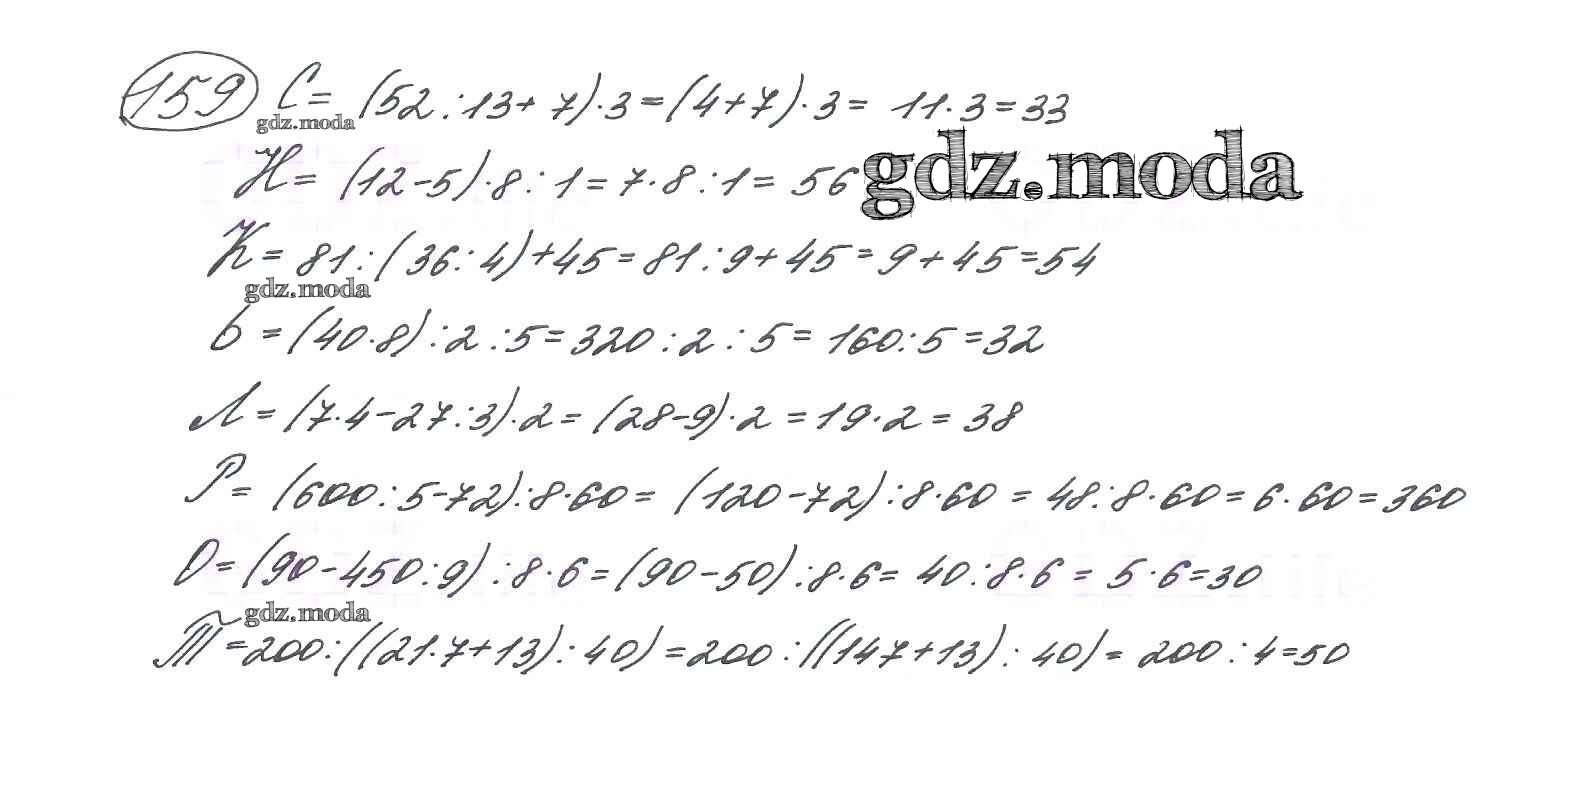 159 С = (52 : 13 + 7) · 3 = (4 + 7) · 3 = 11 · 3 = 33
gdz.moda
gdz.moda
Н = (12 - 5) · 8 : 1 = 7 · 8 : 1 = 56
К = 81 : (36 : 4) + 45 = 81 : 9 + 45 = 9 + 45 = 54
gdz.moda
Ь = (40 · 8) : 2 : 5 = 320 : 2 : 5 = 160 : 5 = 32
Л = (7 · 4 - 27 : 3) · 2 = (28 - 9) · 2 = 19 · 2 = 38
Р = (600 : 5 - 72) : 8 · 60 = (120 - 72) : 8 · 60 = 48 : 8 · 60 = 6 · 60 = 360
О = (90 - 450 : 9) : 8 · 6 = (90 - 50) : 8 · 6 = 40 : 8 · 6 = 5 · 6 = 30
gdz.moda
Т = 200 : ((21 · 7 + 13) : 40) = 200 : ((147 + 13) : 40) = 200 : 4 = 50